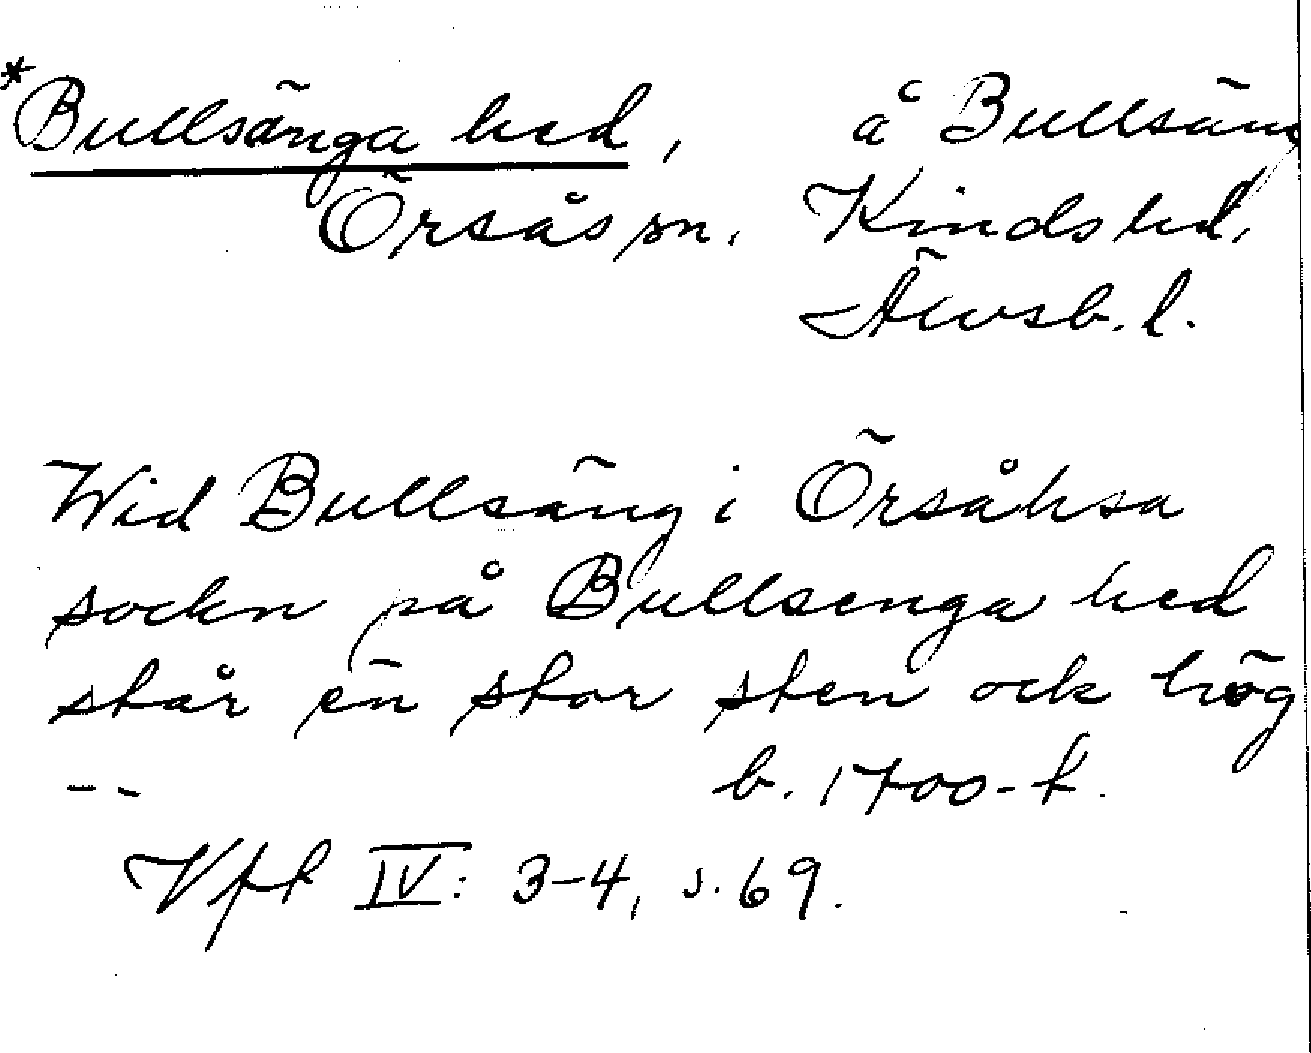 *Bullsänga hed, å Bullsäng
Örsås sn. Kinds hd,
Älvsb. l.
Wid Bullsäng i Örsåhsa
sockn på Bullsenga hed
står en stor sten ock hög
-- b. 1700-t.
Vfk IV: 3-4, s. 69.